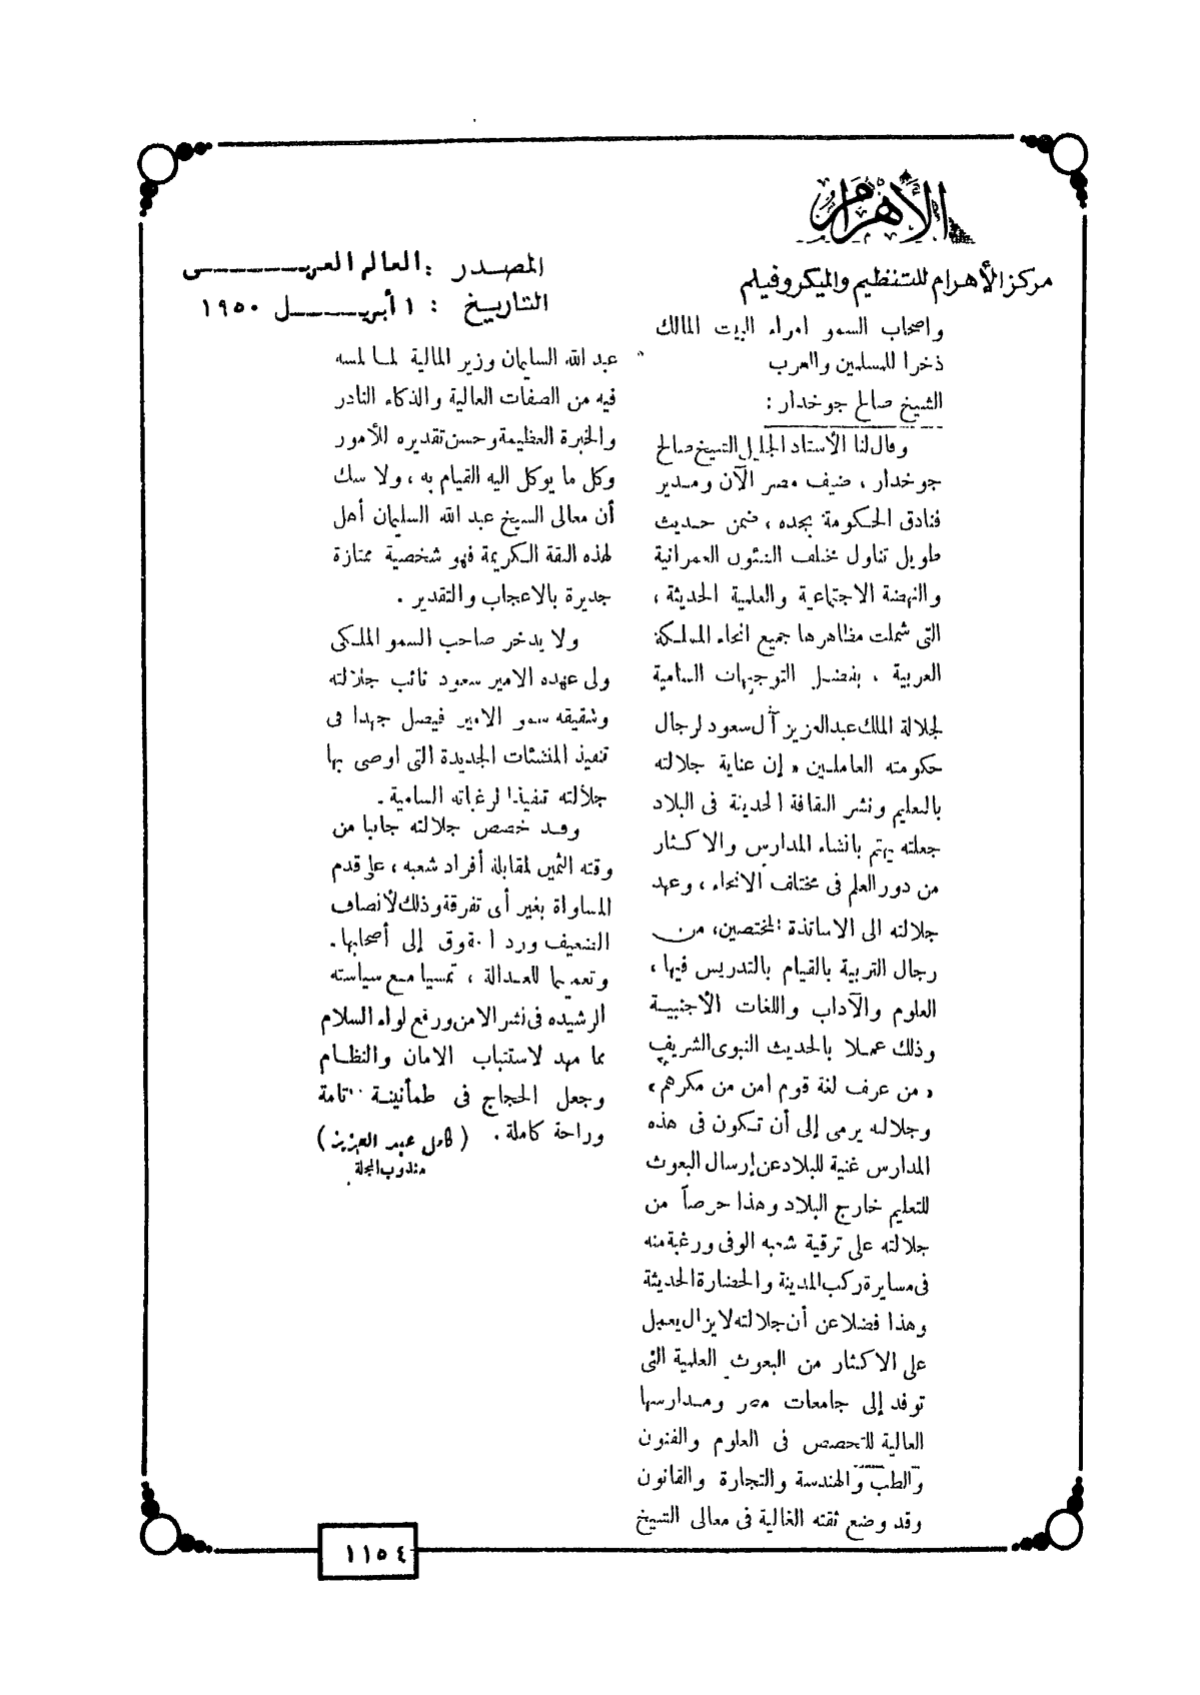 الأهرام
مركز الأهرام للتنظيم والميكروفيلم
المصدر : العالم العربى
التاريخ : ١ أبريل ١٩٥٠
واصحاب السمو امراء البيت المالك
ذخرا للمسلمين والعرب
الشيخ صالح جوخدار :
وقال لنا الأستاذ الجليل الشيخ صالح
جوخدار ، ضيف مصر الآن ومدير
فنادق الحكومة بجده ، ضمن حديث
طويل تناول مختلف الشئون العمرانية
والنهضة الاجتماعية والعلمية الحديثة ،
التى شملت مظاهرها جميع انحاء المملكة
العربية ، بفضل التوجيهات السامية
لجلالة الملك عبدالعزيز آل سعود لرجال
حكومته العاملين « إن عناية جلالته
بالتعليم ونشر الثقافة الحديثة فى البلاد
جعلته يهتم بانشاء المدارس والاكثار
من دور العلم فى مختلف الانحاء ، وعهد
جلالته الى الاساتذة المختصين، من
رجال التربية بالقيام بالتدريس فيها ،
العلوم والآداب واللغات الأجنبية
وذلك عملا بالحديث النبوى الشريف
« من عرف لغة قوم امن من مكرهم »
وجلالته يرمى إلى أن تكون فى هذه
المدارس غنية للبلاد عن إرسال البعوث
للتعليم خارج البلاد وهذا حرصاً من
جلالته على ترقية شعبه الوفى ورغبة منه
فى مسايرة ركب المدينة والحضارة الحديثة
وهذا فضلا عن أن جلالته لايزال يعمل
على الاكثار من البعوث العلمية التى
توفد إلى جامعات مصر ومدارسها
العالية للتخصص فى العلوم والفنون
والطب والهندسة والتجارة والقانون
وقد وضع ثقته الغالية فى معالى الشيخ
عبد الله السليمان وزير المالية لما لمسه
فيه من الصفات العالية والذكاء النادر
والخبرة العظيمة وحسن تقديره للأمور
وكل ما يوكل اليه القيام به ، ولا شك
أن معالى الشيخ عبد الله السليمان أهل
لهذه الثقة الكريمة فهو شخصية ممتازة
جديرة بالاعجاب والتقدير .
ولا يدخر صاحب السمو الملكى
ولى عهده الامير سعود نائب جلالته
وشقيقه سمو الامير فيصل جهدا فى
تنفيذ المنشئات الجديدة التى اوصى بها
جلالته تنفيذا لرغباته السامية .
وقد خصص جلالته جانبا من
وقته الثمين لمقابلة أفراد شعبه ، على قدم
المساواة بغير أى تفرقة وذلك لأنصاف
الضعيف ورد الحقوق إلى أصحابها .
وتعميما للعدالة ، تمشيا مع سياسته
الرشيده فى نشر الامن ورفع لواء السلام
مما مهد لاستتباب الامان والنظام
وجعل الحجاج فى طمأنينة تامة
وراحة كاملة . ( كامل عبد العزيز )
مندوب المجلة
١١٥٤